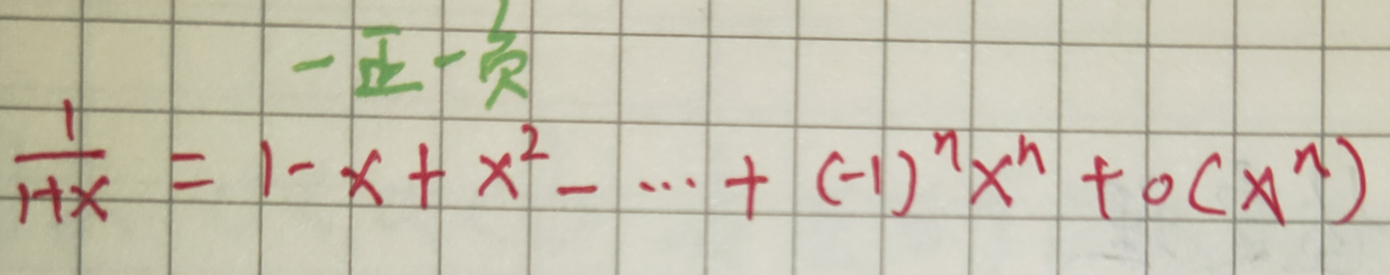 一正一负
1/(1+x) = 1 - x + x² - ... + (-1)ⁿxⁿ + o(xⁿ)